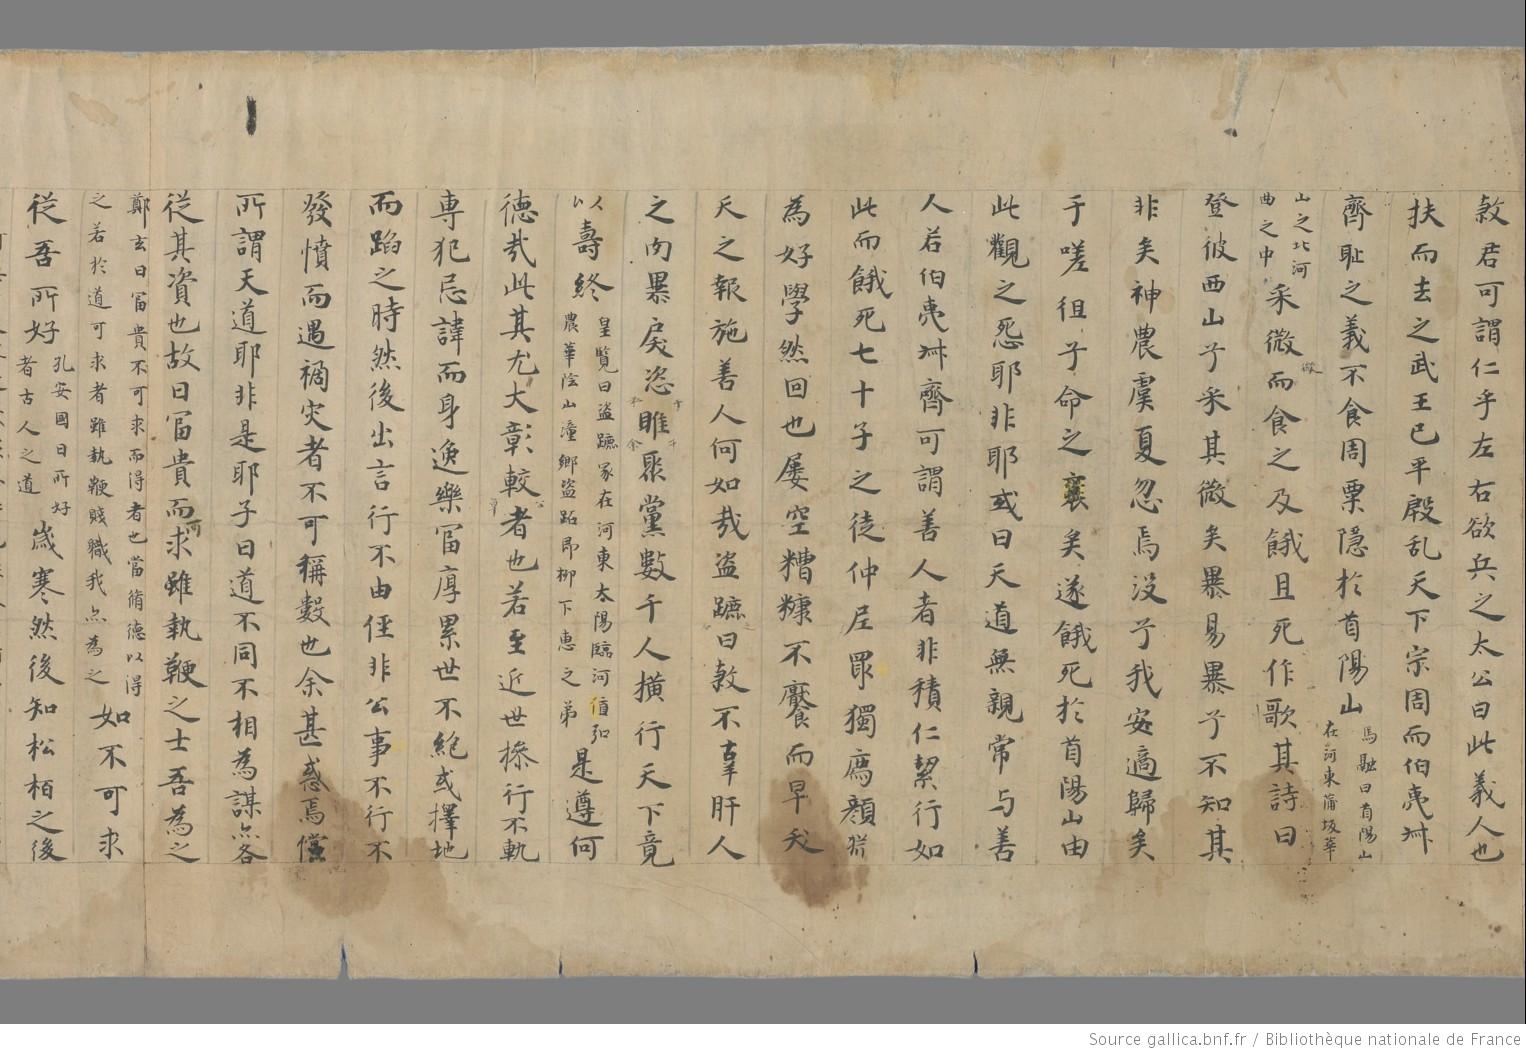 煞君可謂仁乎左右欲兵之太公曰此義人也
扶而去之武王已平殷乱天下宗周而伯夷卅
齊耻之義不食周粟隱於首陽山馬融曰首陽山在河東蒲坂華
山之北河曲之中采薇而食之及餓且死作歌其詩曰
登彼西山兮采其薇矣暴易暴兮不知其
非矣神農虞夏忽焉没兮我安適歸矣
于嗟徂兮命之衰矣遂餓死於首陽山由
此觀之怨耶非耶或曰天道無親常与善
人若伯夷卅齊可謂善人者非積仁絜行如
此而餓死七十子之徒仲尼獨薦顔
為好學然回也屡空糟糠不饜而早夭
天之報施善人何如哉盗蹠日煞不辜肝人
之肉暴戾恣睢聚黨數千人横行天下竟
以壽終皇覧曰盗蹠冢在河東太陽臨河曲弘農華陰山潼鄉盗跖即柳下惠之弟是遵何
徳哉此其尤大彰較者也若至近世操行不軌
専犯忌諱而身逸樂冨厚累世不絶或擇地
而蹈之時然後出言行不由俓非公事不行不
發憤而遇禍灾者不可稱數也余甚惑焉儻
所謂天道耶非是耶子曰道不同不相為謀点各
従其資也故曰冨貴而求雖執鞭之士吾為之
鄭玄曰冨貴不可求而得者也當脩徳以得之若於道可求者雖執鞭賤職我点為之如不可求
従吾所好孔安國曰所好者古人之道歳寒然後知松栢之後
Source gallica.bnf.fr / Bibliothèque nationale de France